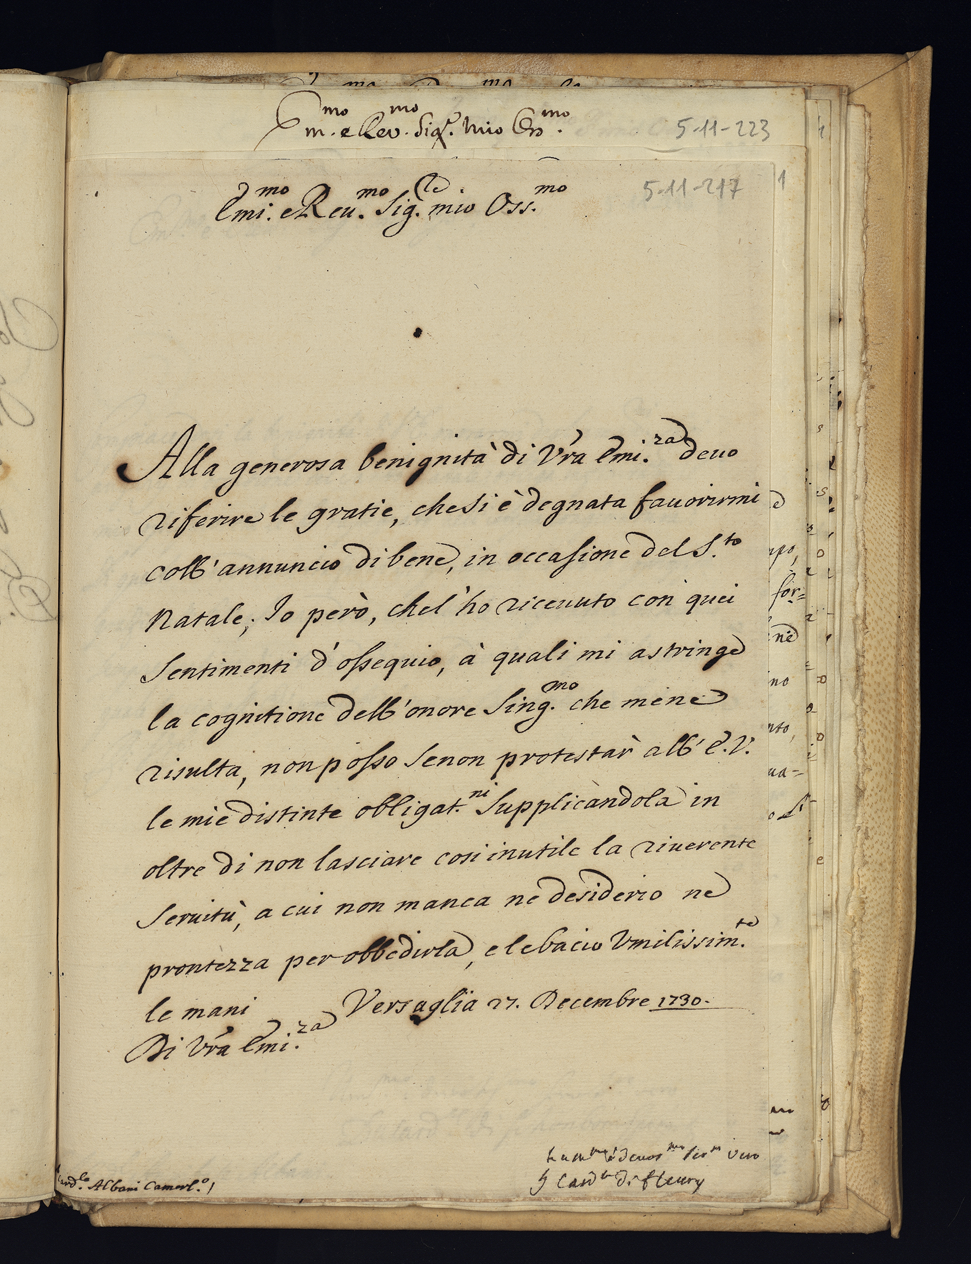 Em.mo e Rev.mo Sig.r mio Oss.mo
5-11-223
Emi.mo e Reu.mo Sig.re mio Oss.mo
5-11-217
1
Alla generosa benignità di Vr̃a Emi.za deuo
riferire le gratie, che si è degnata fauorirmi
coll'annuncio di bene, in occasione del S.to
Natale; Io però, che l'ho riceuuto con quei
sentimenti d'ossequio, à quali mi astringe
la cognitione dell'onore sing.mo che me ne
risulta, non posso se non protestar all'E.V.
le mie distinte obligat.ni supplicandola in
oltre di non lasciare cosi inutile la riuerente
seruitù, a cui non manca ne desiderio ne
prontezza per obbedirla, e le bacio Vmilissim.te
le mani Versaglia 27. Decembre 1730.
Di Vr̃a Emi.za
deuo.mo ser.re vero
Il Card.le di fleury
Card.le Albani Camerl.o